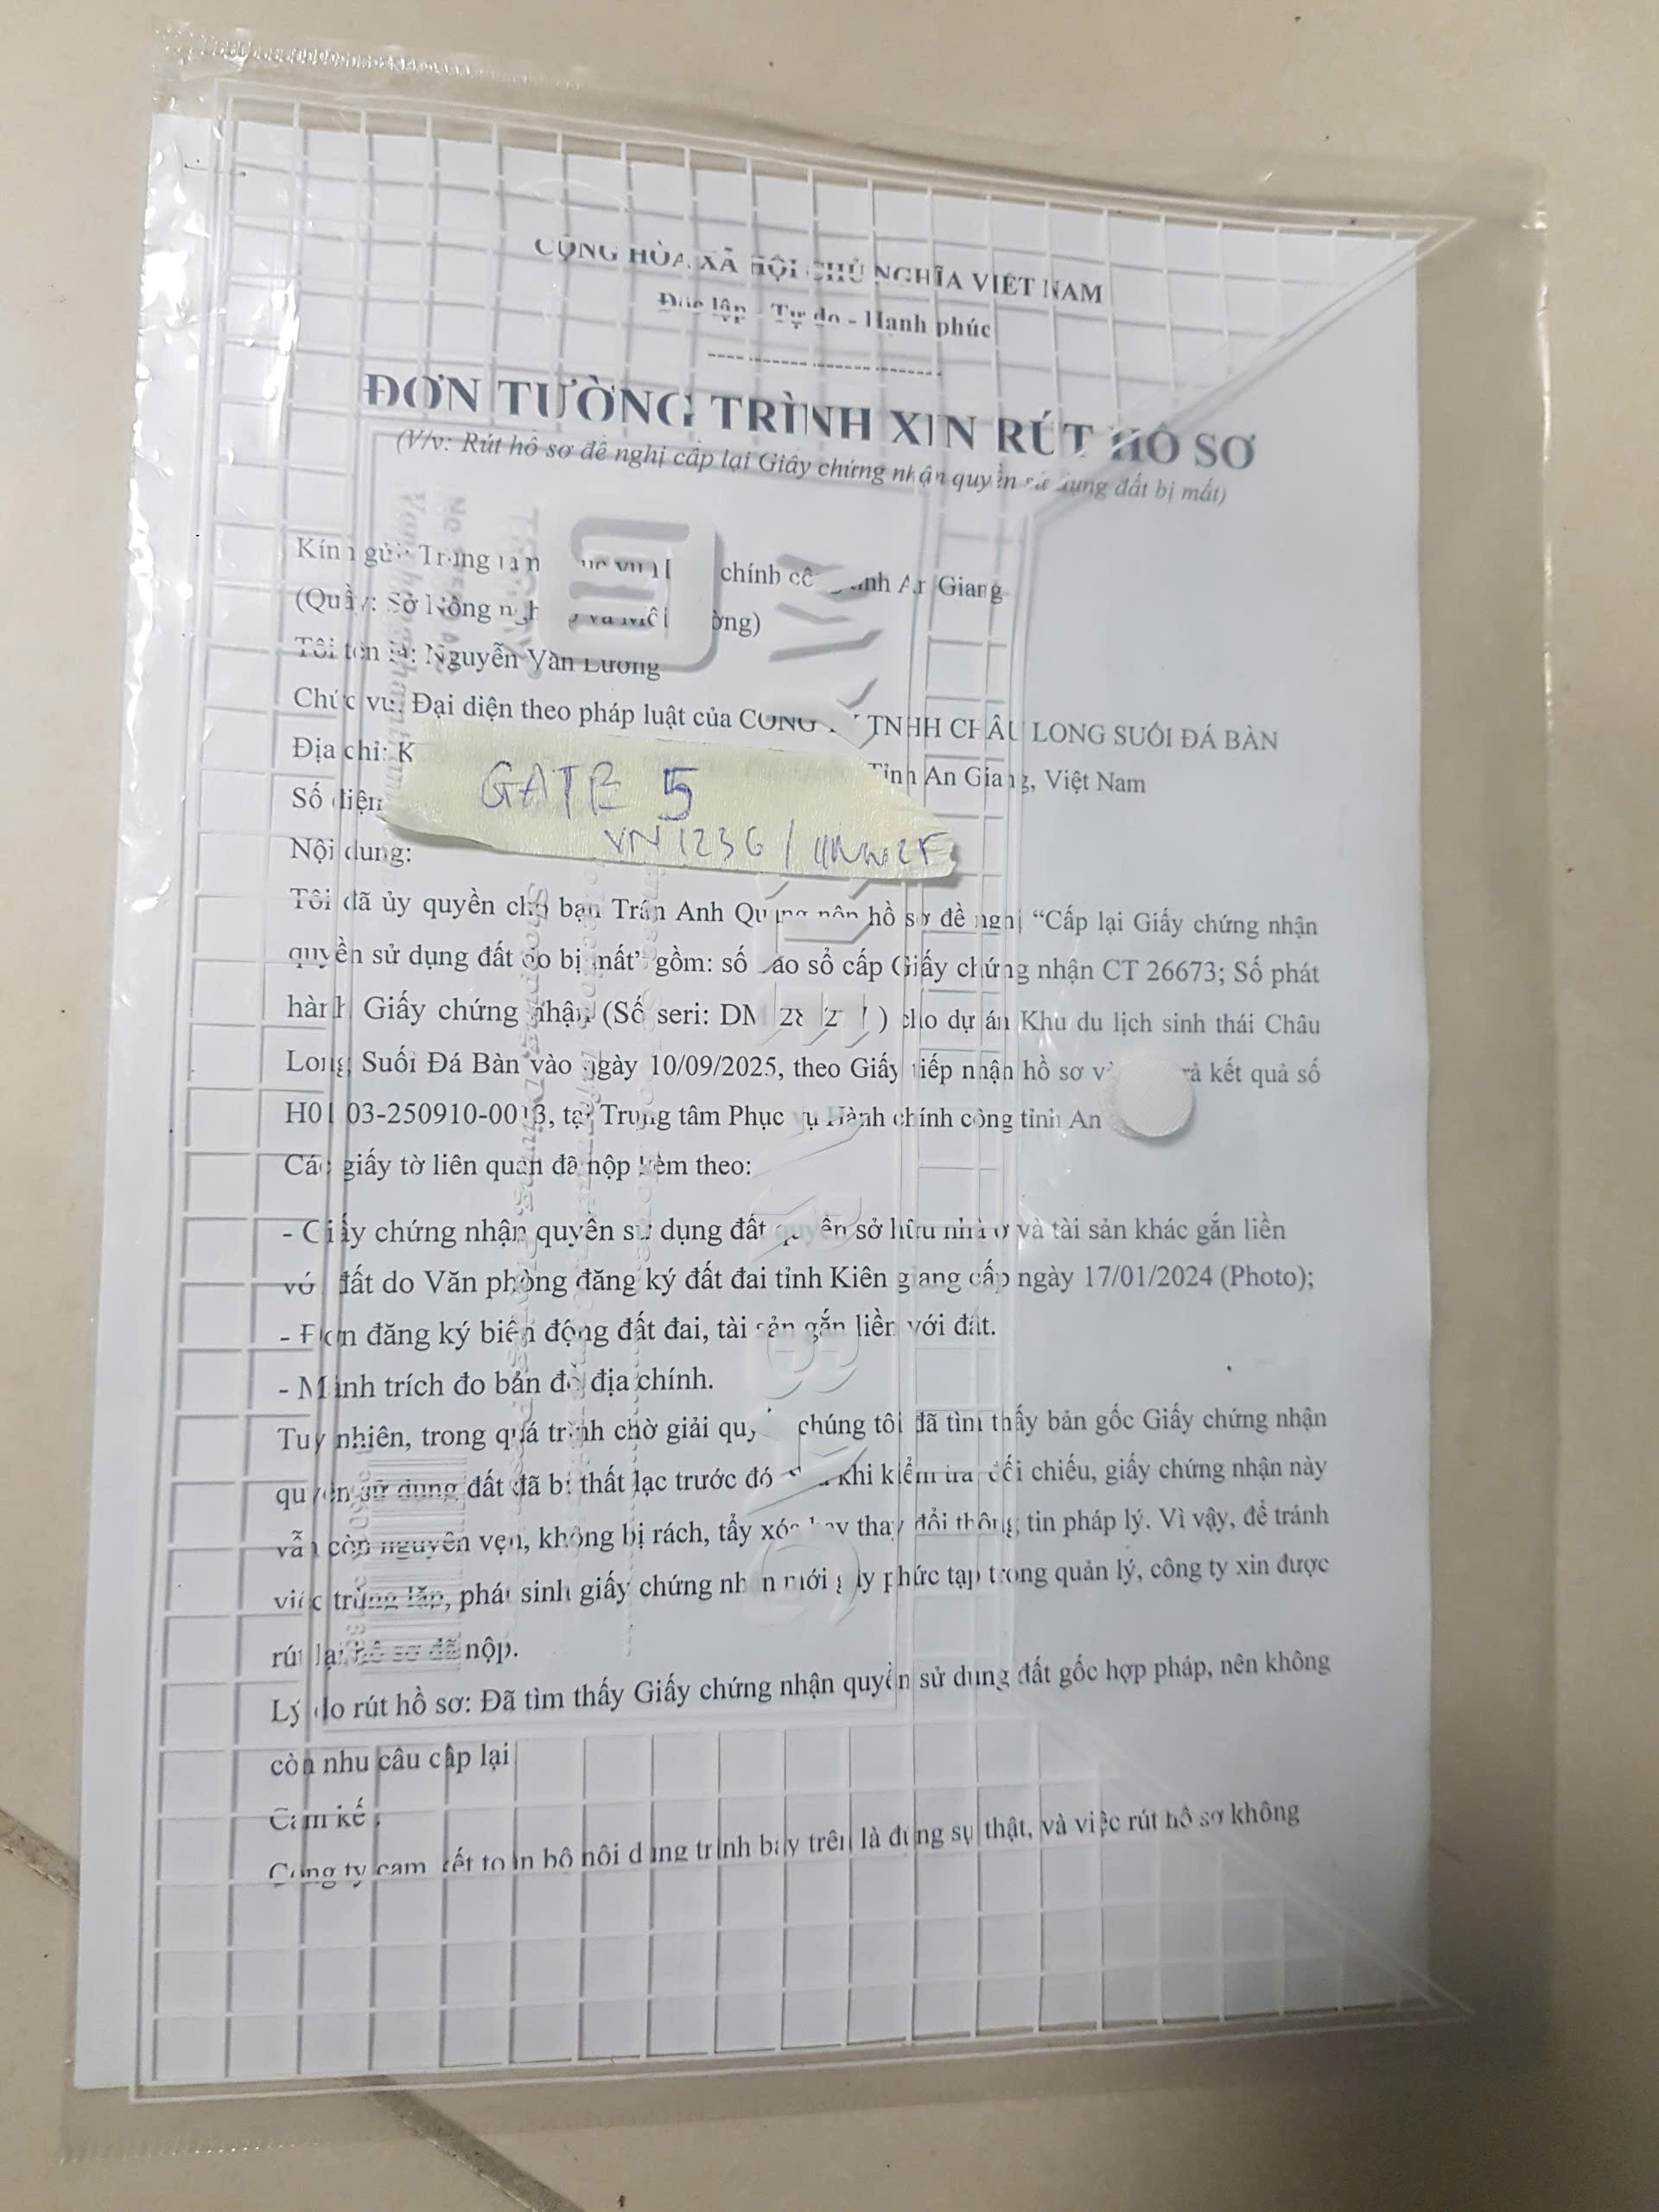 CỘNG HÒA XÃ HỘI CHỦ NGHĨA VIỆT NAM
Độc lập - Tự do - Hạnh phúc
ĐƠN TƯỜNG TRÌNH XIN RÚT HỒ SƠ
(V/v: Rút hồ sơ đề nghị cấp lại Giấy chứng nhận quyền sử dụng đất bị mất)
Kính gửi: Trung tâm Phục vụ chính công tỉnh An Giang
(Quầy: Sở Nông nghiệp và Môi trường)
Tôi tên là: Nguyễn Văn Lương
Chức vụ: Đại diện theo pháp luật của CÔNG TY TNHH CHÂU LONG SUỐI ĐÁ BÀN
Địa chỉ: Tỉnh An Giang, Việt Nam
Số điện
GATE 5
VN1236 /
Nội dung:
Tôi đã ủy quyền cho bạn Trần Anh Quang nộp hồ sơ đề nghị “Cấp lại Giấy chứng nhận
quyền sử dụng đất do bị mất” gồm: số vào sổ cấp Giấy chứng nhận CT 26673; Số phát
hành Giấy chứng nhận (Số seri: ) cho dự án Khu du lịch sinh thái Châu
Long Suối Đá Bàn vào ngày 10/09/2025, theo Giấy tiếp nhận hồ sơ và trả kết quả số
250910-0013, tại Trung tâm Phục vụ Hành chính công tỉnh An
Các giấy tờ liên quan đã nộp kèm theo:
- Giấy chứng nhận quyền sử dụng đất quyền sở hữu nhà ở và tài sản khác gắn liền
với đất do Văn phòng đăng ký đất đai tỉnh Kiên giang cấp ngày 17/01/2024 (Photo);
- Đơn đăng ký biến động đất đai, tài sản gắn liền với đất.
- Mảnh trích đo bản đồ địa chính.
Tuy nhiên, trong quá trình chờ giải quyết chúng tôi đã tìm thấy bản gốc Giấy chứng nhận
quyền sử dụng đất đã bị thất lạc trước đó khi kiểm tra, đối chiếu, giấy chứng nhận này
vẫn còn nguyên vẹn, không bị rách, tẩy xóa hay thay đổi thông tin pháp lý. Vì vậy, để tránh
việc trùng lặp, phát sinh giấy chứng nhận mới gây phức tạp trong quản lý, công ty xin được
rút lại hồ sơ đã nộp.
Lý do rút hồ sơ: Đã tìm thấy Giấy chứng nhận quyền sử dụng đất gốc hợp pháp, nên không
còn nhu cầu cấp lại
Cam kết:
Công ty cam kết toàn bộ nội dung trình bày trên là đúng sự thật, và việc rút hồ sơ không